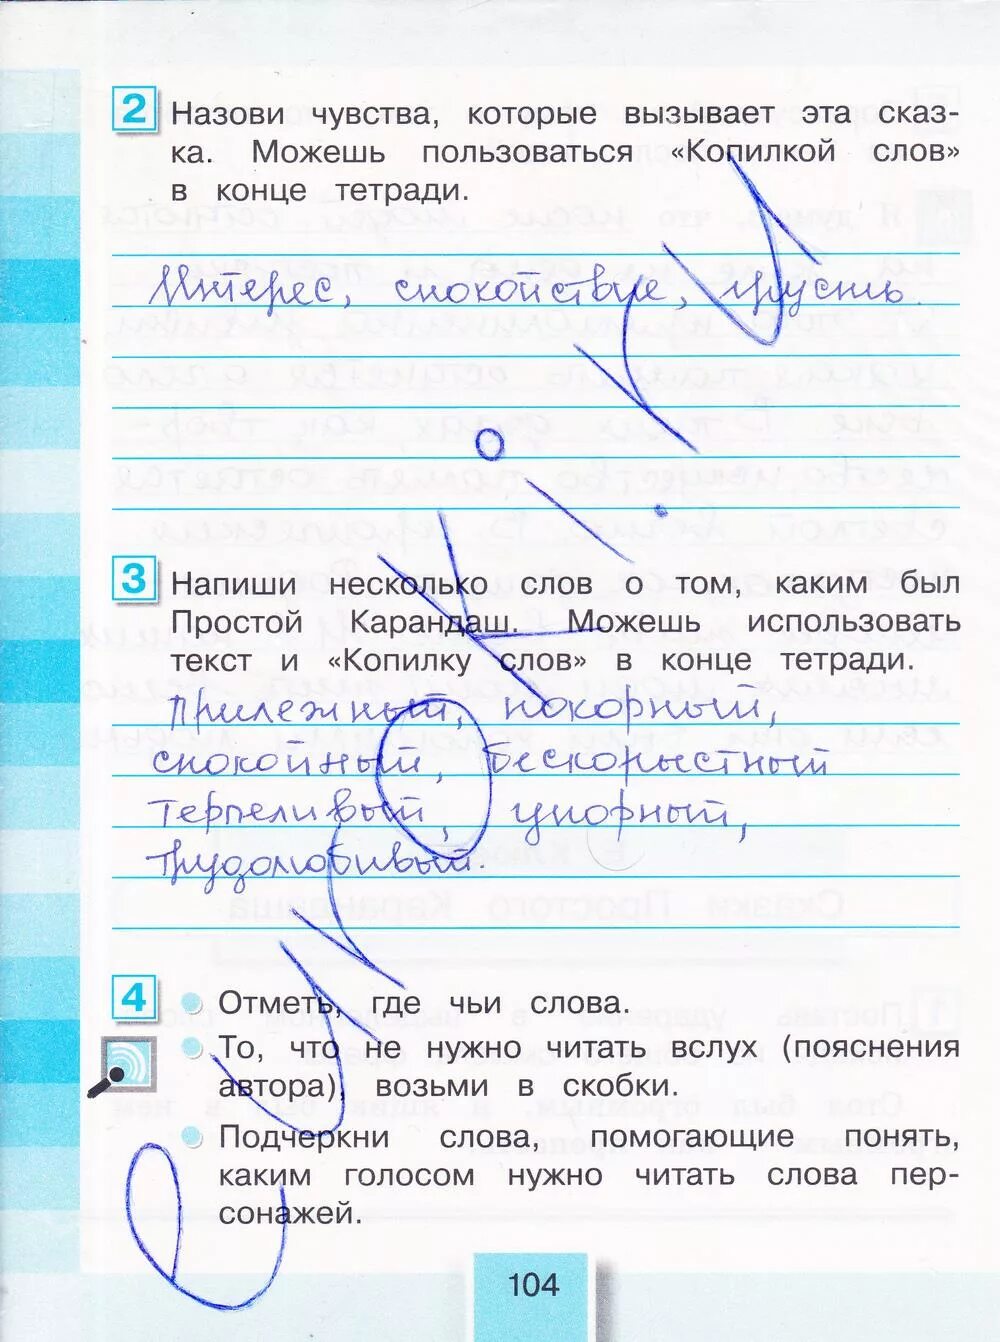 2 Назови чувства, которые вызывает эта сказ-
ка. Можешь пользоваться «Копилкой слов»
в конце тетради.
Интерес, спокойствие, грусть
3 Напиши несколько слов о том, каким был
Простой Карандаш. Можешь использовать
текст и «Копилку слов» в конце тетради.
Прилежный, покорный,
спокойный, бескорыстный
терпеливый, упорный,
трудолюбивый.
4 Отметь, где чьи слова.
То, что не нужно читать вслух (пояснения
автора), возьми в скобки.
Подчеркни слова, помогающие понять,
каким голосом нужно читать слова пер-
сонажей.
104